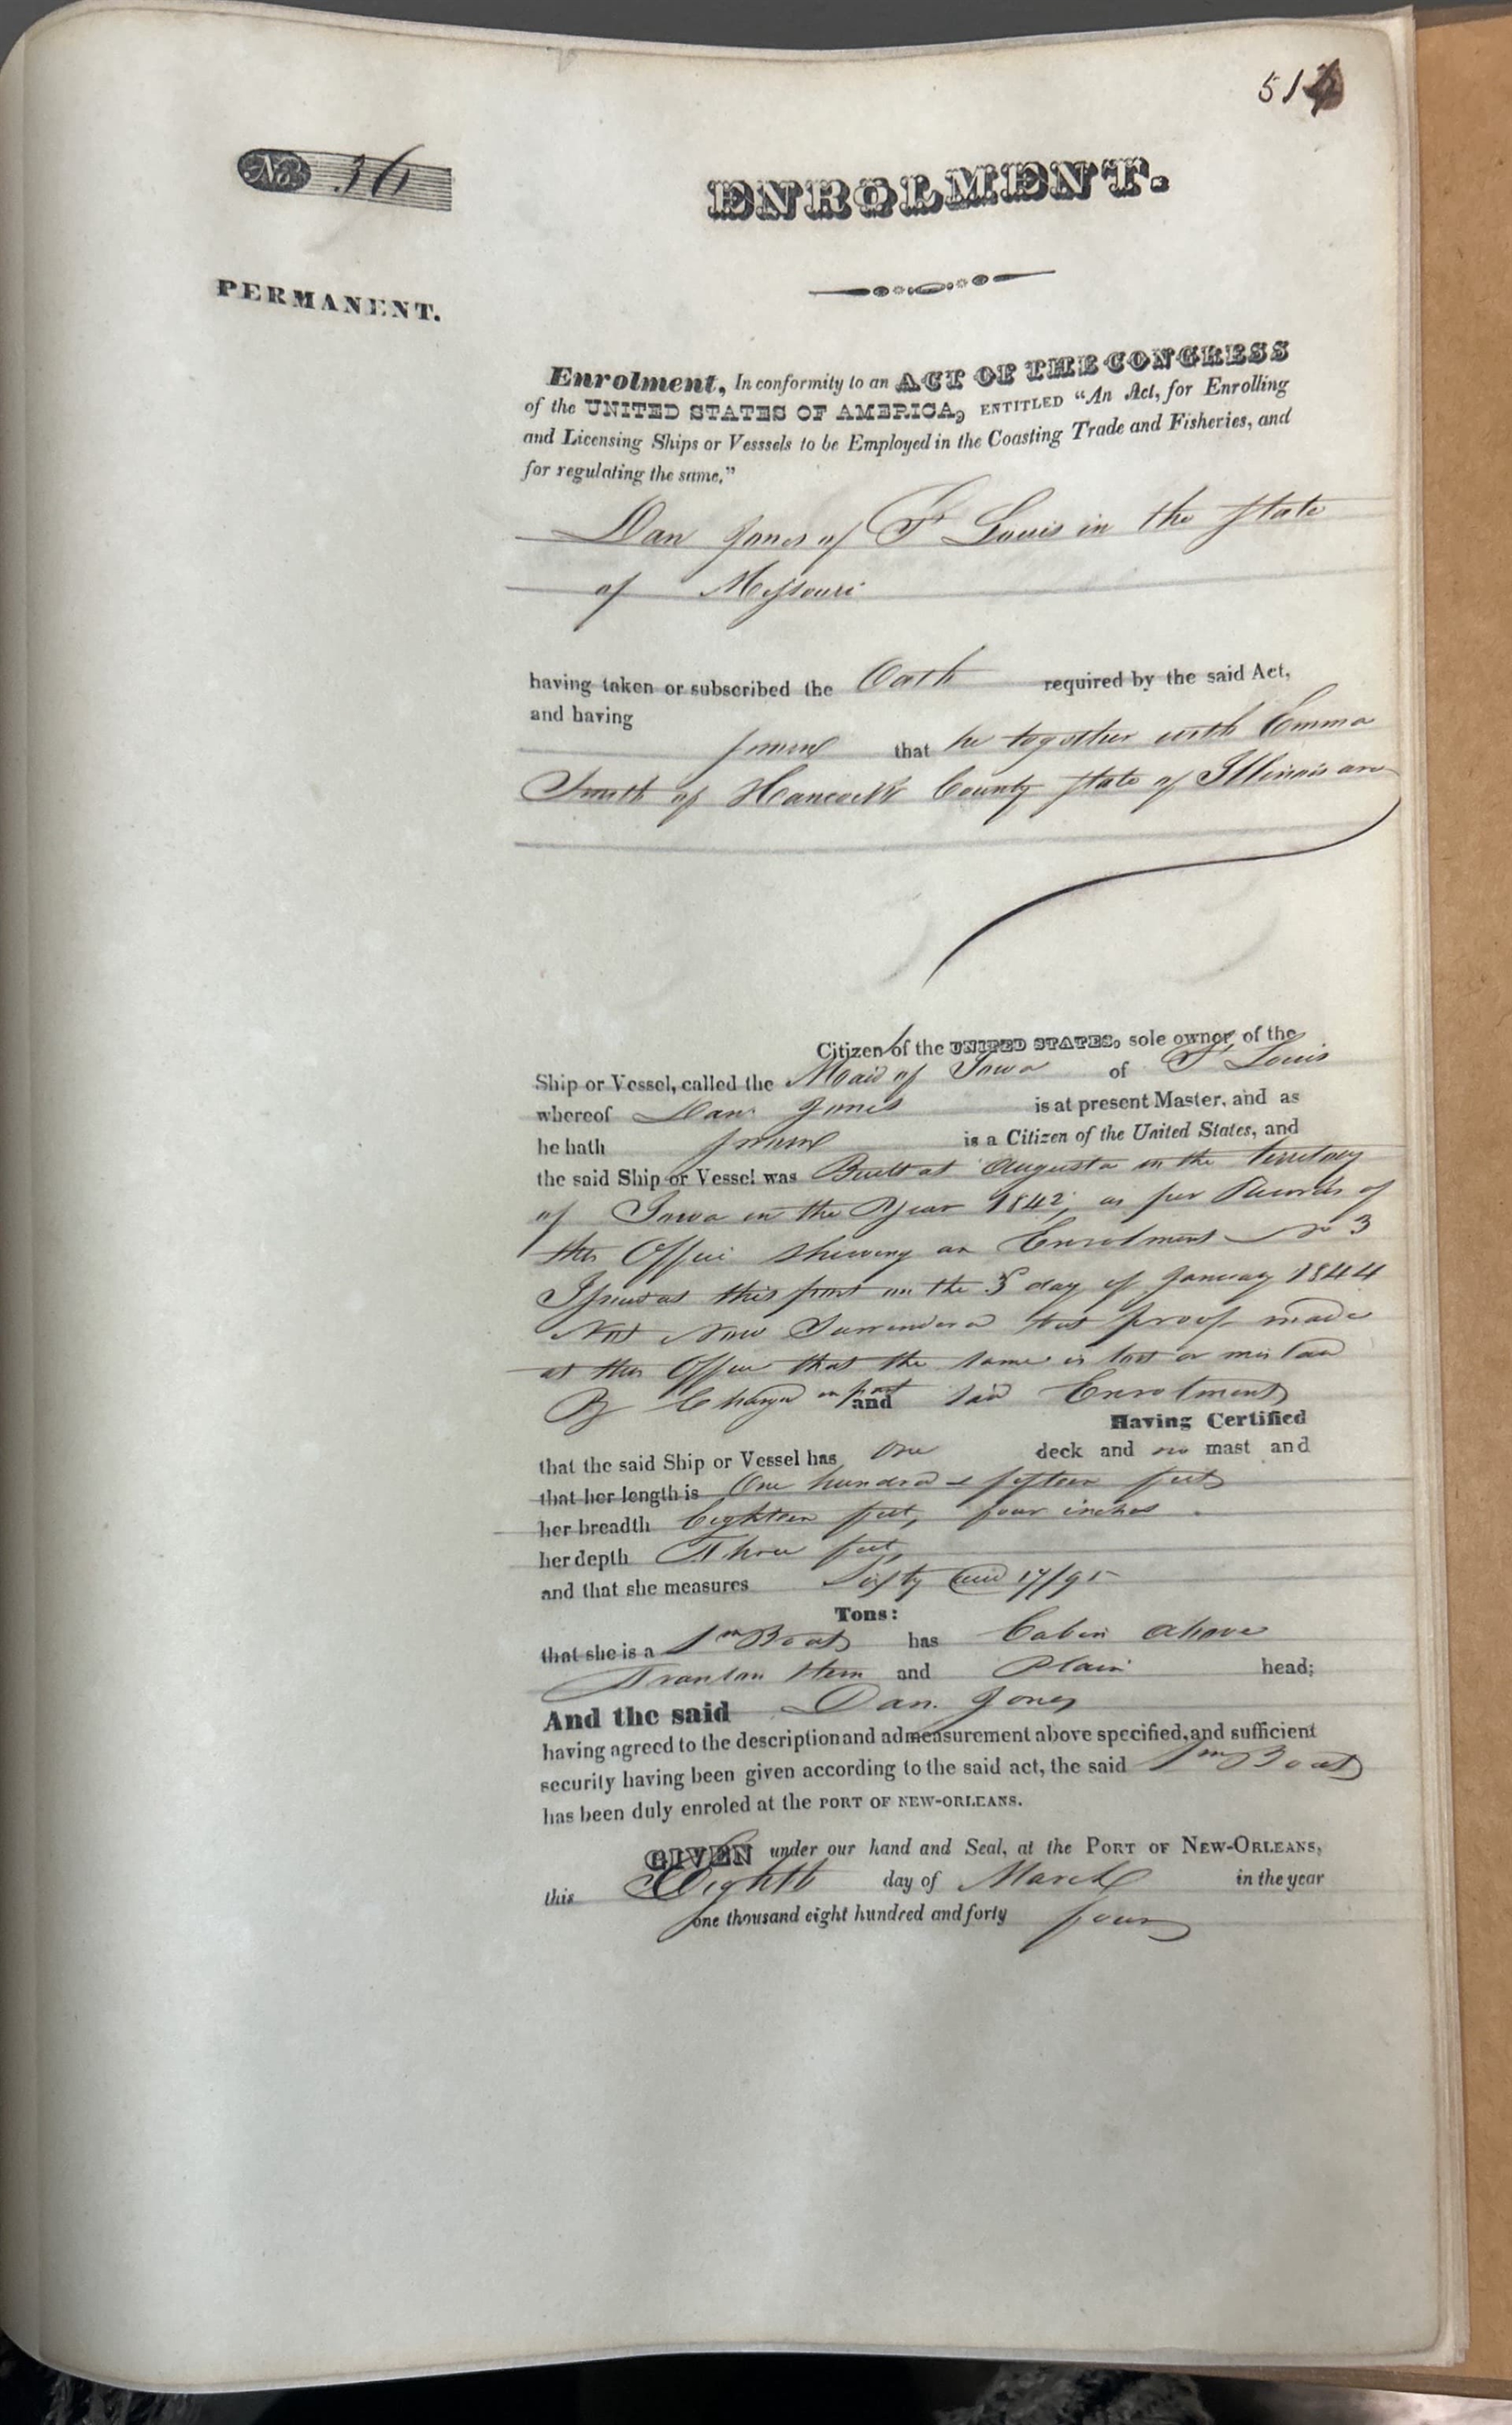 51
No. 36
ENROLMENT.
PERMANENT.
Enrolment, In conformity to an ACT OF THE CONGRESS
of the UNITED STATES OF AMERICA, ENTITLED "An Act, for Enrolling
and Licensing Ships or Vesssels to be Employed in the Coasting Trade and Fisheries, and
for regulating the same."
Dan Jones of St Louis in the State
of Missouri
having taken or subscribed the Oath required by the said Act,
and having
sworn that he together with Emma
Smith of Hancock County State of Illinois are
Citizens of the UNITED STATES, sole owner of the
Ship or Vessel, called the Maid of Iowa of St Louis
whereof Dan Jones is at present Master, and as
he hath sworn is a Citizen of the United States, and
the said Ship or Vessel was Built at Augusta in the Territory
of Iowa in the Year 1842, as per Records of
this Office shewing an Enrolment No 3
Issued at this port on the 3 day of January 1844
Not Now Surrendered but proof made
at this Office that the same is lost or mis laid
Changed in part and said Enrolment
Having Certified
that the said Ship or Vessel has One deck and no mast and
that her length is One hundred & fifteen feet
her breadth Eighteen feet, four inches
her depth Three feet,
and that she measures Sixty and 17/95
Tons:
that she is a Sm Boat has Cabin above
Transom Stern and Plain head;
And the said Dan. Jones
having agreed to the description and admeasurement above specified, and sufficient
security having been given according to the said act, the said Sm Boat
has been duly enroled at the PORT OF NEW-ORLEANS.
GIVEN under our hand and Seal, at the PORT OF NEW-ORLEANS,
this Eighth day of March in the year
one thousand eight hundred and forty four